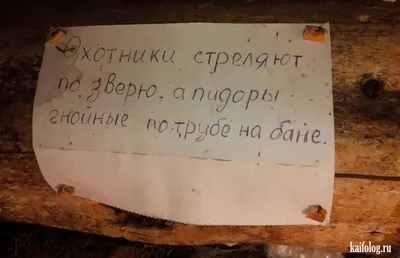 Охотники стреляют
по зверю, а пидоры
гнойные по трубе на бане.
kaifolog.ru